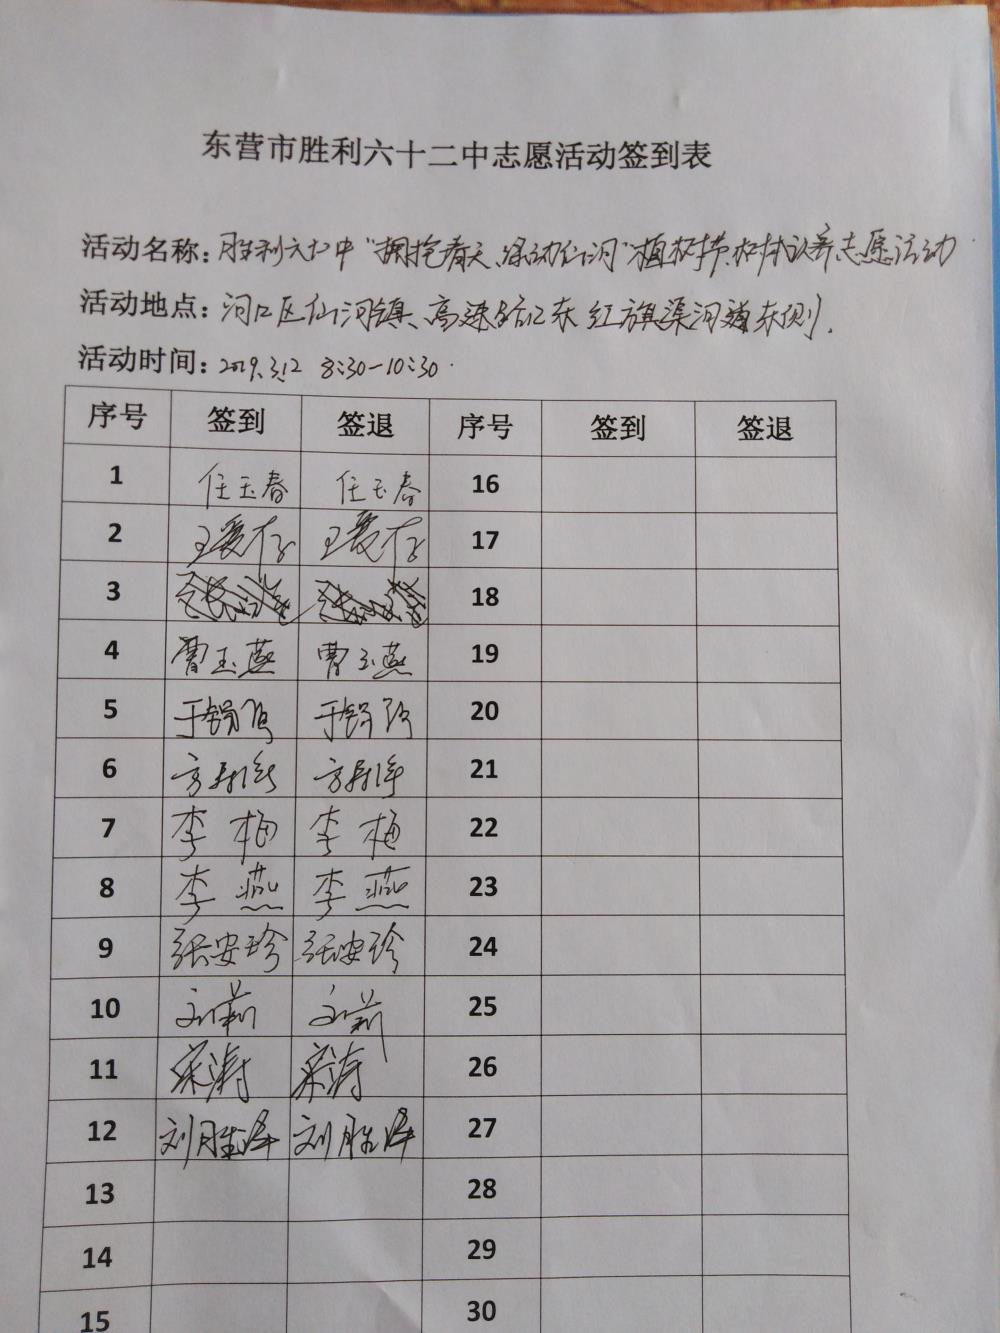 东营市胜利六十二中志愿活动签到表
活动名称：胜利六十二中“拥抱春天、绿动仙河”植树节、树木认养志愿活动
活动地点：河口区仙河镇、高速路以东 红旗渠河道东侧.
活动时间：2019.3.12 8:30-10:30.
序号 签到 签退 序号 签到 签退
1 任玉春 任玉春 16
2 王爱存 王爱存 17
3 18
4 曹玉燕 曹玉燕 19
5 于锡 于锡 20
6 方 方 21
7 李梅 李梅 22
8 李燕 李燕 23
9 张安珍 张安珍 24
10 刘莉 刘莉 25
11 宋涛 宋涛 26
12 刘胜泽 刘胜泽 27
13 28
14 29
15 30